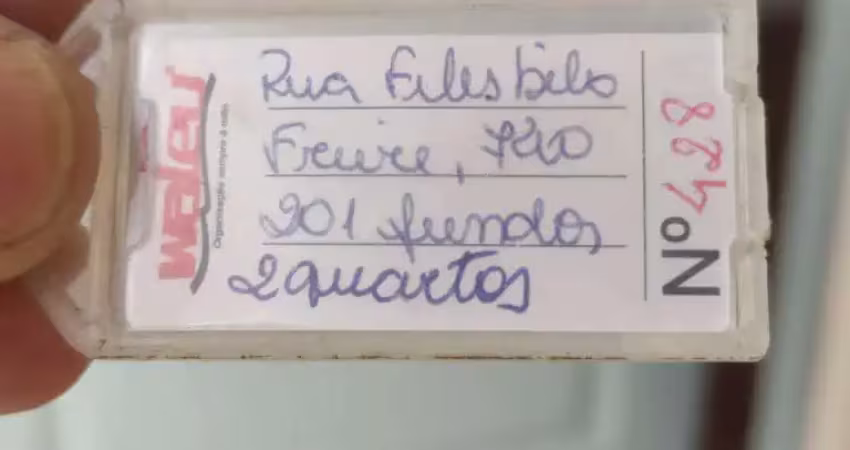 Rua Filisbilo
Freire, 720
201 fundos
2 quartos
Nº 428
waleu
Organização sempre à mão